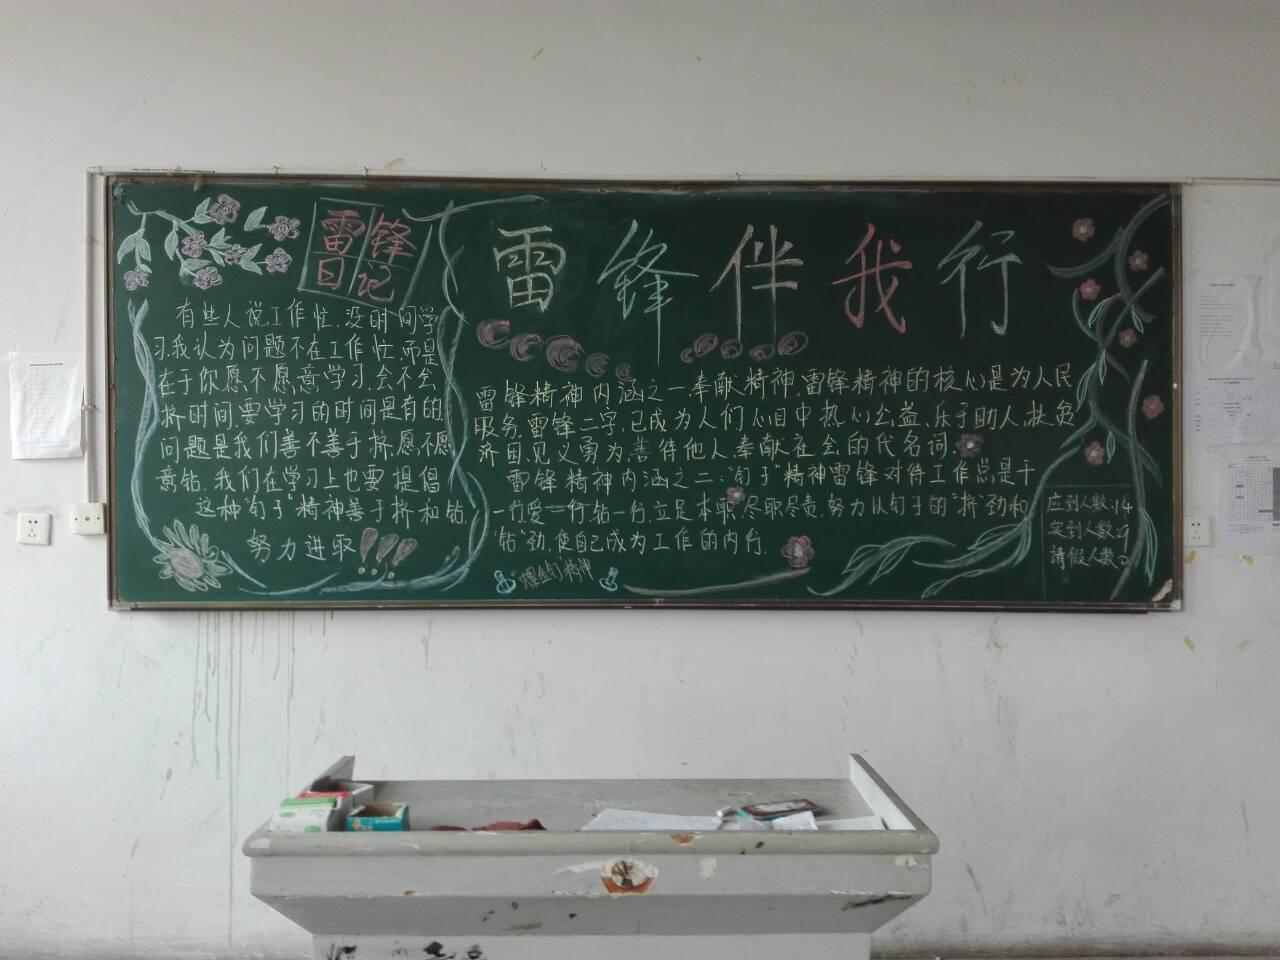 雷锋
日记
有些人说工作忙、没时间学
习,我认为问题不在工作忙,而是
在于你愿不愿意学习,会不会
挤时间,要学习的时间是有的,
问题是我们善不善于挤,愿不愿
意钻。我们在学习上也要提倡
这种"钉子"精神善于挤和钻。
努力进取!!!
雷锋伴我行
雷锋精神内涵之一:奉献精神,雷锋精神的核心是为人民
服务,雷锋二字,已成为人们心目中热心公益、乐于助人、扶贫
济困、见义勇为、善待他人奉献社会的代名词。
雷锋精神内涵之二:"钉子"精神雷锋对待工作总是干
一行,爱一行,钻一行,立足本职,尽职尽责,努力从钉子的"挤"劲和
"钻"劲,使自己成为工作的内行.
"螺丝钉"精神
应到人数:14
实到人数:9
請假人数: